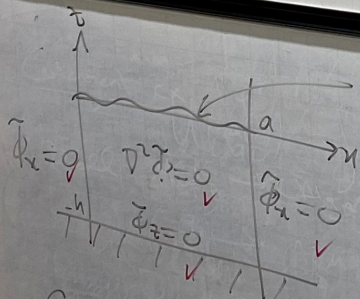 z
a
x
φ̃ₓ = 0
∇²φ̃ = 0
φ̃ₓ = 0
-h
φ̃_z = 0